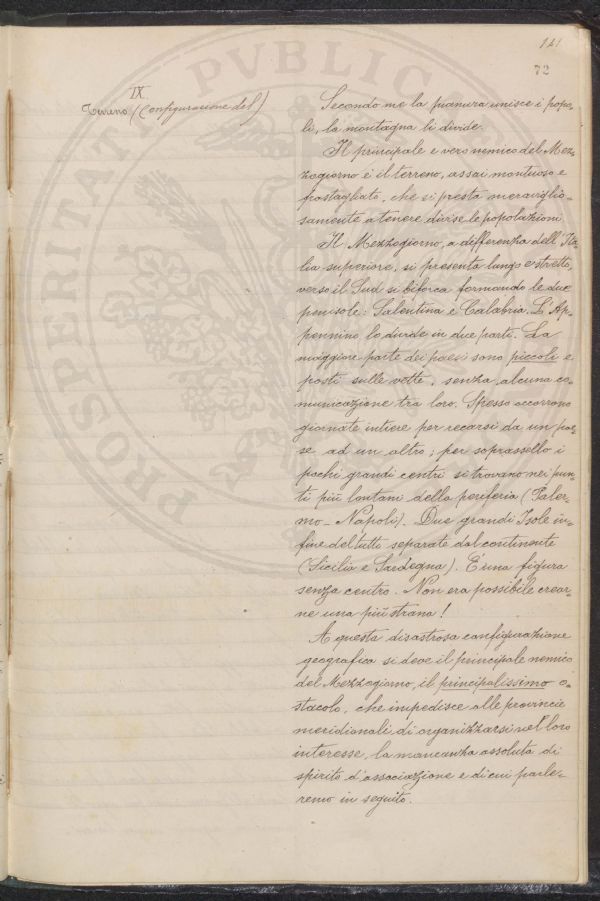 121
72
IX.
Terreno (Configurazione del)
Secondo me la pianura unisce i popo-
li, la montagna li divide.
Il principale e vero nemico del Mez-
zogiorno è il terreno, assai montuoso e
frastagliato, che si presta meraviglio-
samente a tenere divise le popolazioni
Il Mezzogiorno, a differenza dell'Ita-
lia superiore, si presenta lungo e stretto,
verso il Sud si biforca formando le due
penisole: Salentina e Calabria. L'Ap-
pennino lo divide in due parti. La
maggiore parte dei paesi sono piccoli e
posti sulle vette, senza alcuna co-
municazione tra loro. Spesso occorrono
giornate intiere per recarsi da un pae-
se ad un altro; per soprassello i
pochi grandi centri si trovano nei pun-
ti più lontani della periferia (Paler-
mo - Napoli). Due grandi Isole in-
fine del tutto separate dal continente
(Sicilia e Sardegna). È una figura
senza centro. Non era possibile crear-
ne una più strana!
A questa disastrosa configurazione
geografica si deve il principale nemico
del Mezzogiorno, il principalissimo o-
stacolo, che impedisce alle provincie
meridionali di organizzarsi nel loro
interesse, la mancanza assoluta di
spirito d'associazione e di cui parle-
remo in seguito.
PROSPERITATI PVBLICAE